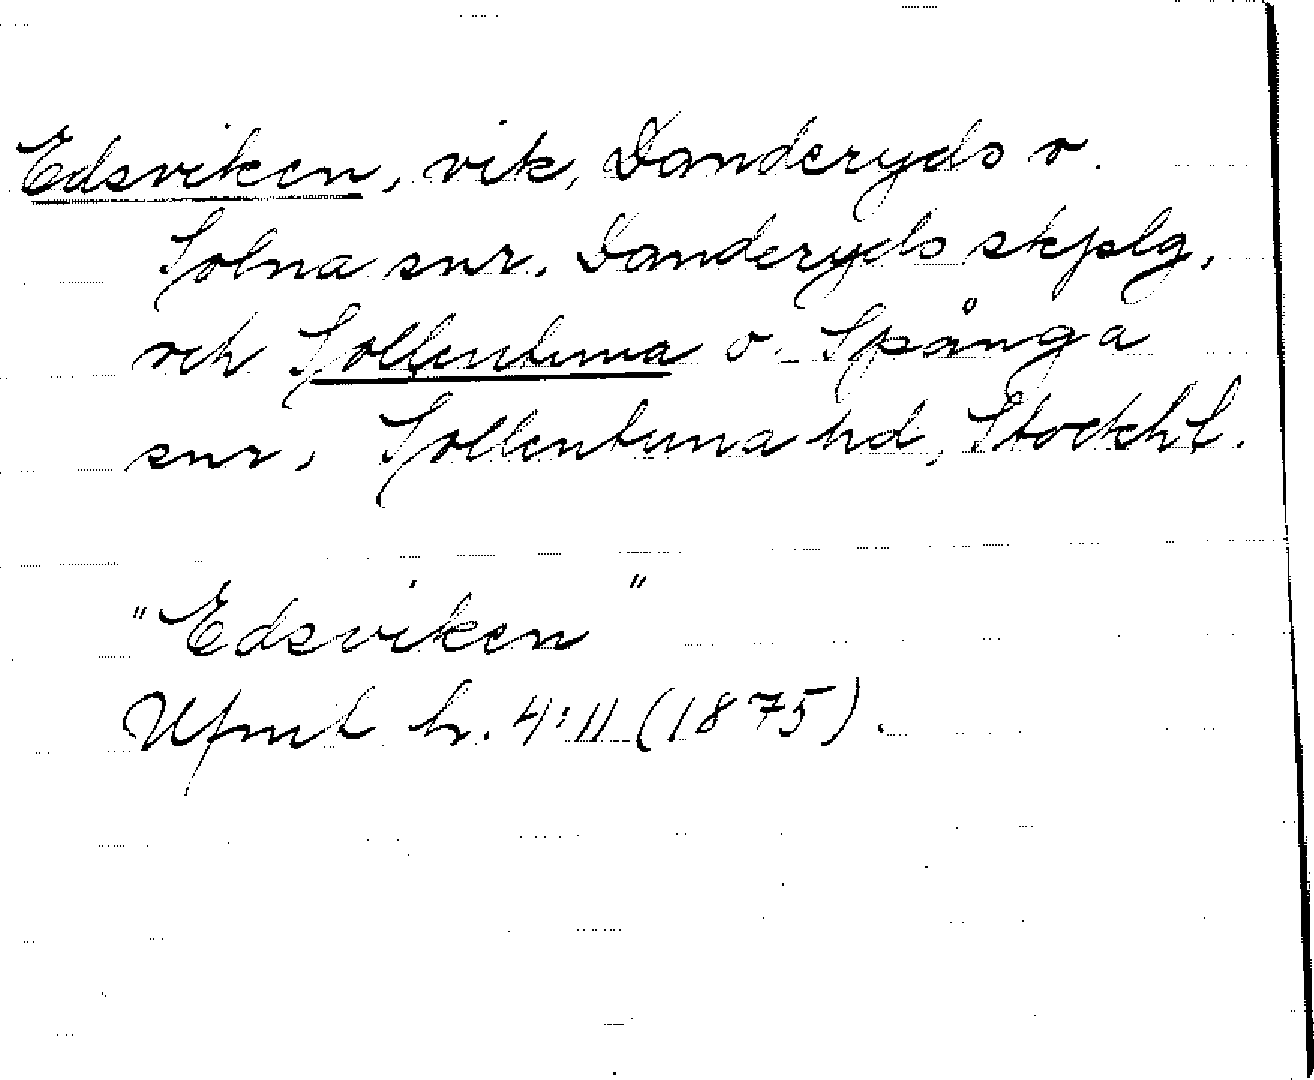 Edsviken, vik, Danderyds o.
Solna snr. Danderyds skplg,
och Sollentuna o. Spånga
snr, Sollentuna hd, Stockh. l.
"Edsviken"
Ufml h. 4:11 (1875).